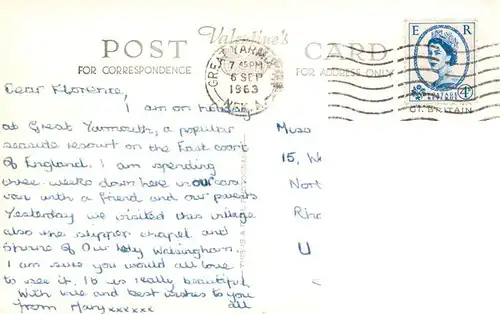 Valentine's
POST CARD
FOR CORRESPONDENCE FOR ADDRESS ONLY
GREAT YARMOUTH
7 45PM
6 SEP
1963
E R
GT. BRITAIN
Dear Florence,
I am on holiday
at Great Yarmouth, a popular
seaside resort on the East coast
of England. I am spending
three weeks down here in our
van with a friend and our parents
Yesterday we visited this village
also the slipper chapel and
Shrine of Our Lady Walsingham.
I am sure you would all love
to see it. It is really beautiful
With love and best wishes to you
from Mary xxxxxx all
15, W
Nort
U
THIS IS A REAL PHOTOGRAPH